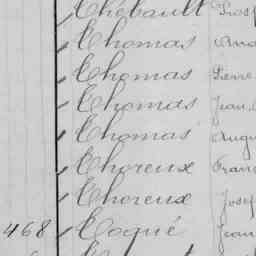 Thébault Prosp
Thomas
Thomas Pierre
Thomas Jean
Thomas Augu
Thoreux Fran
Thoreux Josep
468 Toqué Jean